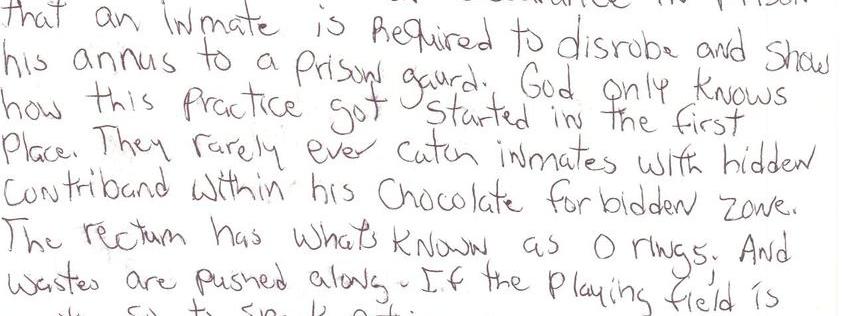 that an inmate is Required to disrobe and show
his annus to a prison gaurd. God only knows
how this practice got started in the first
Place. They rarely ever catch inmates with hidden
Contriband within his Chocolate forbidden zone.
The rectum has what's known as O rings. And
wastes are pushed along. If the playing field is